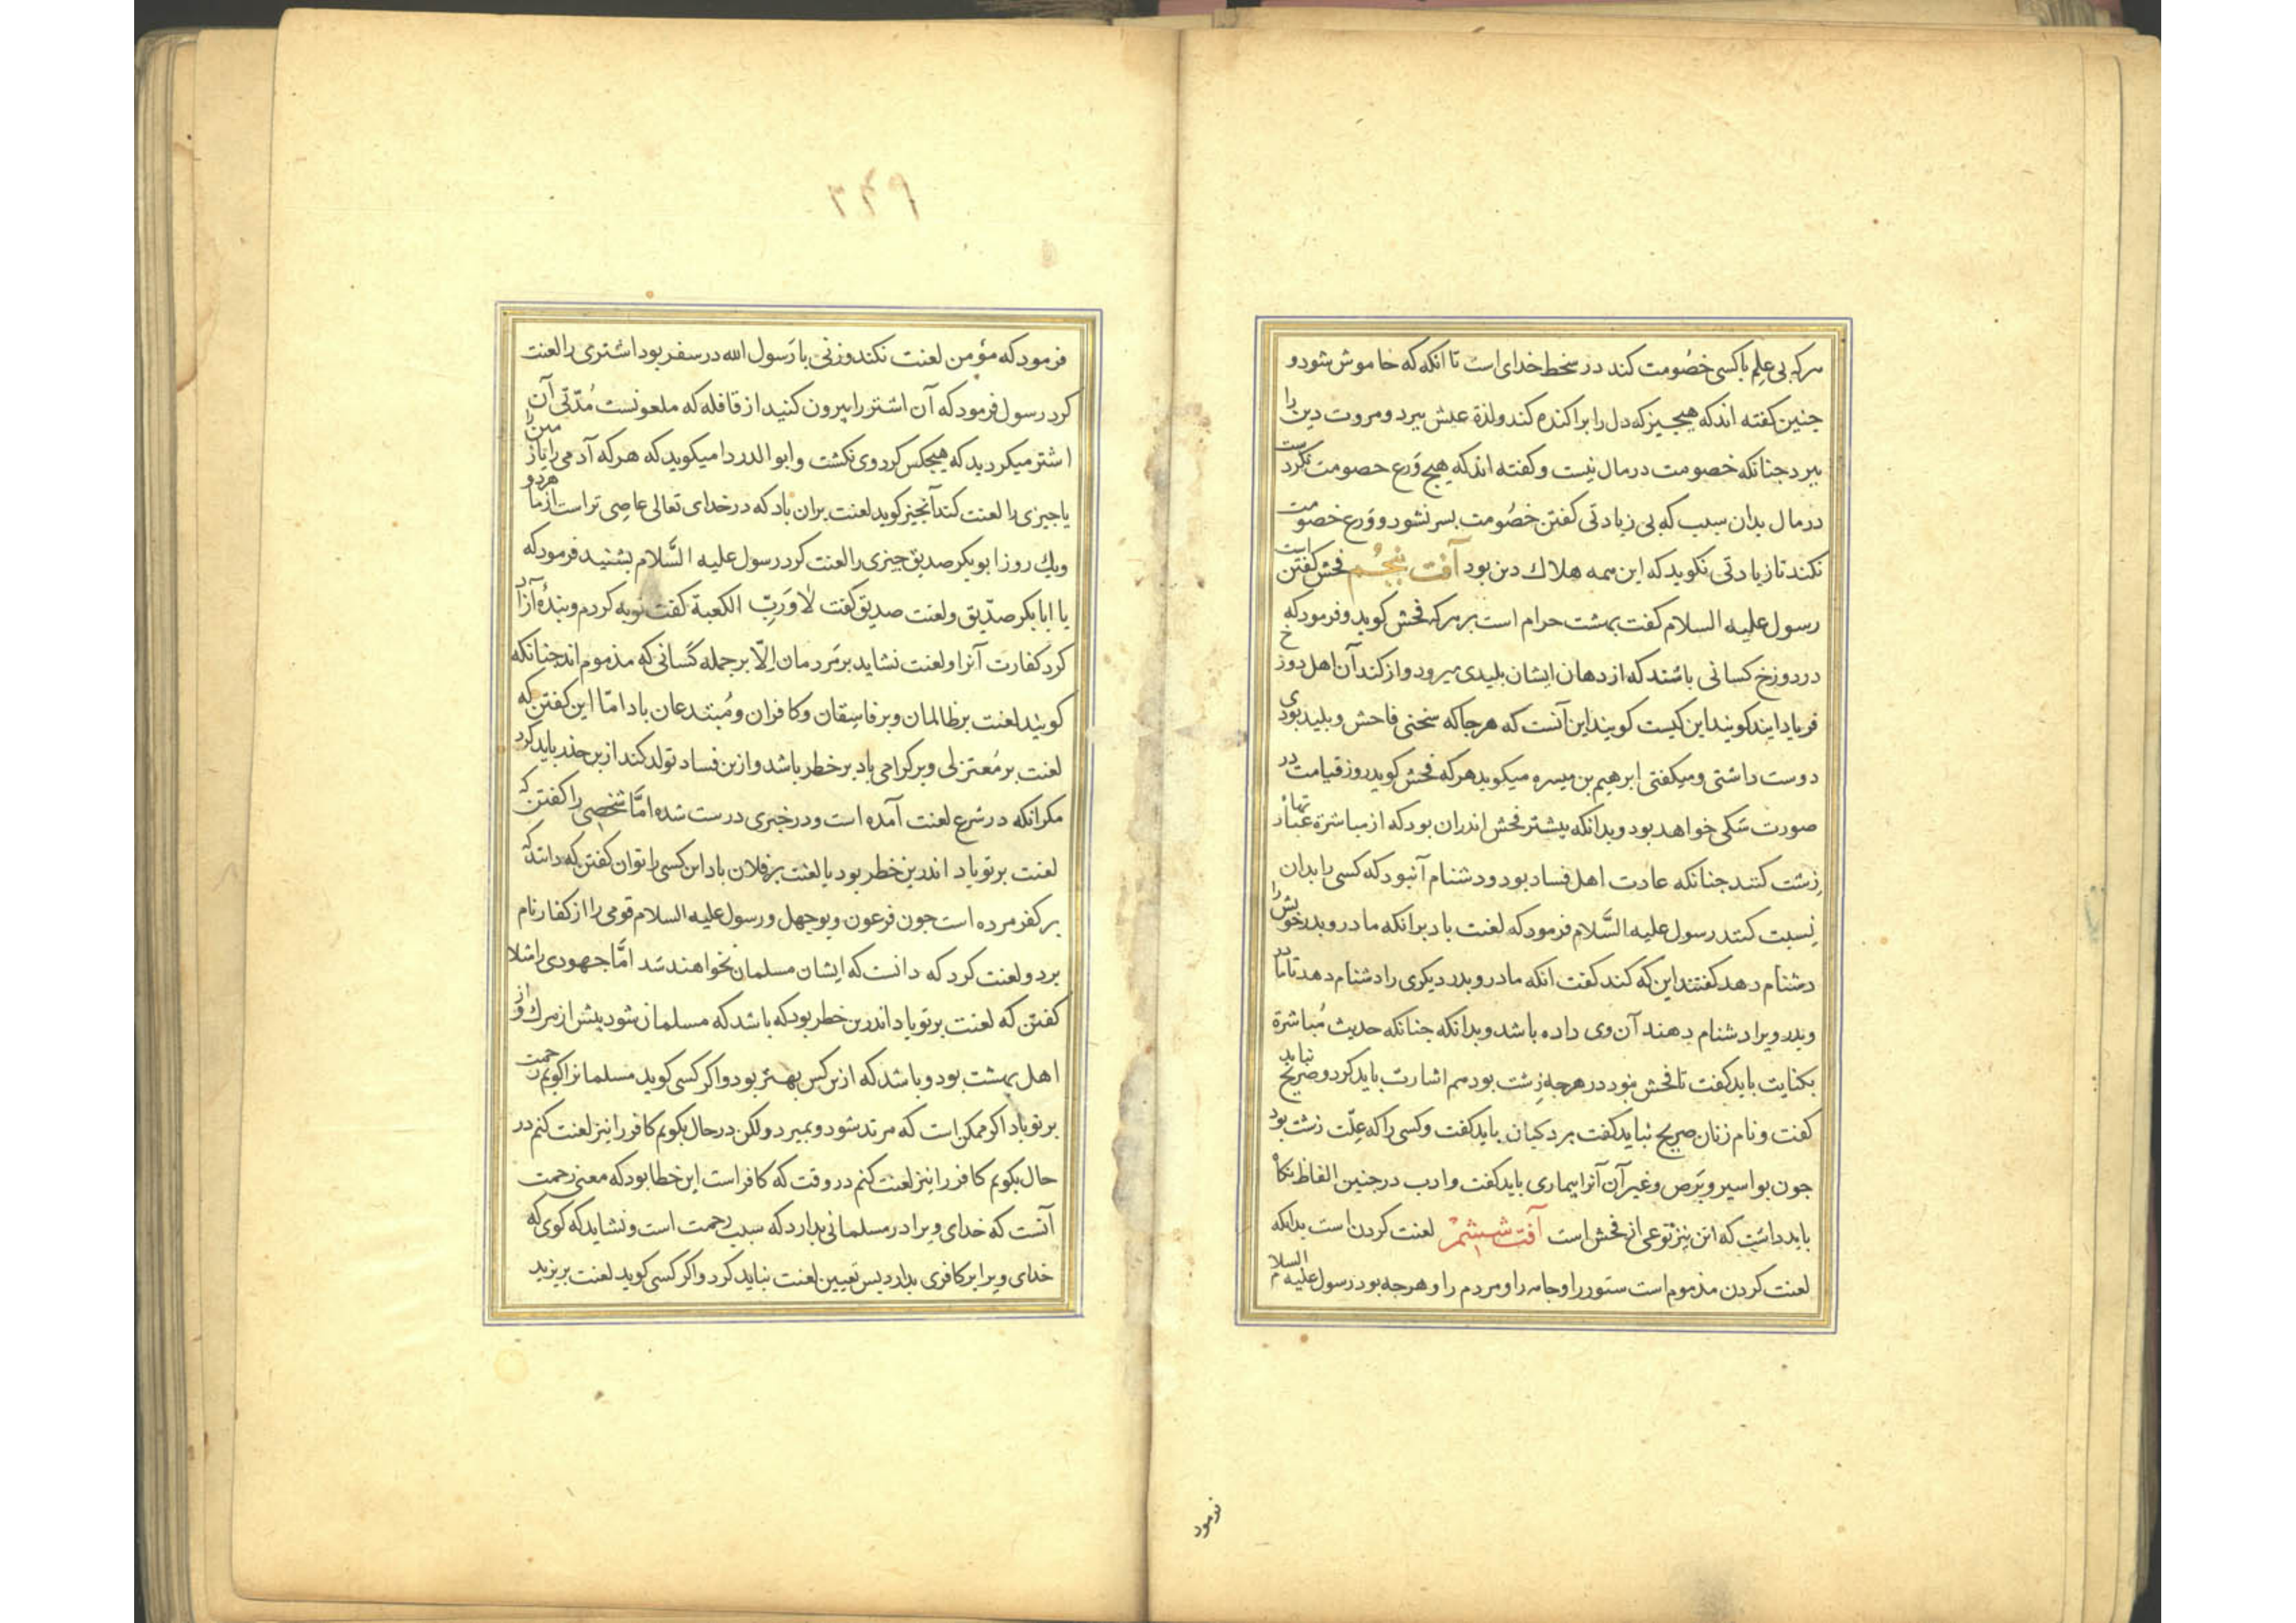 هرکه بی علم باکسی خصُومت کند در سخط خدای است تا انکه که خاموش شود و
جنین کفته اند که هیچ جیز که دل را براکنده کند و لذة عیش ببرد و مروت دین را
ببرد جنانکه خصومت در مال نیست و کفته اند که هیچ وَرِع خصومت نکردست
در مال بدان سبب که بی زیادتی کفتن خصُومت بسر نشود و وَرِع خصومت
نکند تا زیادتی نکوید که این همه هلاك دین بود آفت پنجُم فحش کفتن است
رسول علیه السلام کفت بهشت حرام است بر هرکه فحش کوید و فرمود که
در دوزخ کسانی باشند که از دهان ایشان بلیدی میرود و از کند آن اهل دوزخ
فریاد ایند کویند این کیست کویند این آنست که هرجا که سخنی فاحش و بلید بودی
دوست داشتی و میکفتی ابرهیم بن میسره میکوید هرکه فحش کوید روز قیامت در
صورت سکی خواهد بود و بدانکه بیشتر فحش اندران بود که از مباشرة عبارتهاء
زشت کنند جنانکه عادت اهل فساد بود و دشنام آنبود که کسی را بدان
نِسبت کنند رسول علیه السَّلام فرمود که لعنت باد برانکه مادر و بدر خویش را
دشنام دهد کفتند این که کند کفت انکه مادر و بدر دیکری را دشنام دهد تا مادر
و بدر ویرا دشنام دهند آن وی داده باشد و بدانکه جنانکه حدیث مُباشرة
بکنایت باید کفت تا فحش نبود در هرجه زِشت بود هم اشارت باید کرد و صریح نباید
کفت و نام زنان صریح نباید کفت بردکیان باید کفت و کسی را که عِلّت زشت بود
جون بواسیر و بَرَص و غیر آن آنرا بیماری باید کفت و ادب در جنین الفاظ نکاه
باید داشت که این نیز نوعی از فحش است آفت شِشم لعنت کردن است بدانکه
لعنت کردن مذموم است ستور را و جامه را و مردم را و هرجه بود رسول علیه السلام
فرمود
۲۳۹
فرمود که مؤمن لعنت نکند و زنی با رَسول الله در سفر بود اشتری را لعنت
کرد رسول فرمود که آن اشتر را بیرون کنید از قافله که ملعونست مُدّتی آن
اشتر میکردید که هیجکس کرد وی نکشت و ابو الدردا میکوید که هرکه آدمی را یا زمین را
یا جیزی را لعنت کند آنجیز کوید لعنت بران باد که در خدای تعالی عاصِی تر است از ما هردو
ویك روز ابوبکر صدیق جیزی را لعنت کرد رسول علیه السَّلام بشنید فرمود که
یا ابا بکر صدّیق و لعنت صدیق کفت لا وَرَبِّ الکعبة کفت توبه کردم و بندهٔ آزاد
کرد کفارت آنرا و لعنت نشاید بر مَردمان اِلّا بر جمله کَسانی که مذموم اند جنانکه
کویند لعنت بر ظالمان و بر فاسِقان و کافران و مُبتدعان باد امّا این کفتن که
لعنت بر مُعتزلی و بر کرامی باد بر خطر باشد و ازین فساد تولد کند ازین حذر باید کرد
مکر انکه در شرع لعنت آمده است و در خبری درست شده امَّا شخصِی را کفتن که
لعنت بر تو باد اندرین خطر بود یا لعنت بر فلان باد این کسی را توان کفتن که دانند که
بر کفر مرده است جون فرعون و بوجهل و رسول علیه السلام قومی را از کفار نام
برد و لعنت کرد که دانست که ایشان مسلمان نخواهند شد امَّا جهودی را مثلا
کفتن که لعنت بر تو باد اندرین خطر بود که باشد که مسلمان شود بیش از مرك و از
اهل بهشت بود و باشد که ازین کس بهتر بود و اکر کسی کوید مسلمانرا کویم رحمت
بر تو باد اکر ممکن است که مرتد شود و بمیرد ولکن در حال بکویم کافر را نیز لعنت کنم در
حال بکویم کافر را نیز لعنت کنم در وقت که کافر است این خطا بود که معنی رحمت
آنست که خدای ویرا در مسلمانی بدارد که سبب رحمت است و نشاید که کوی که
خدای ویرا بر کافری بدارد بس تعیین لعنت نباید کرد و اکر کسی کوید لعنت بر یزید